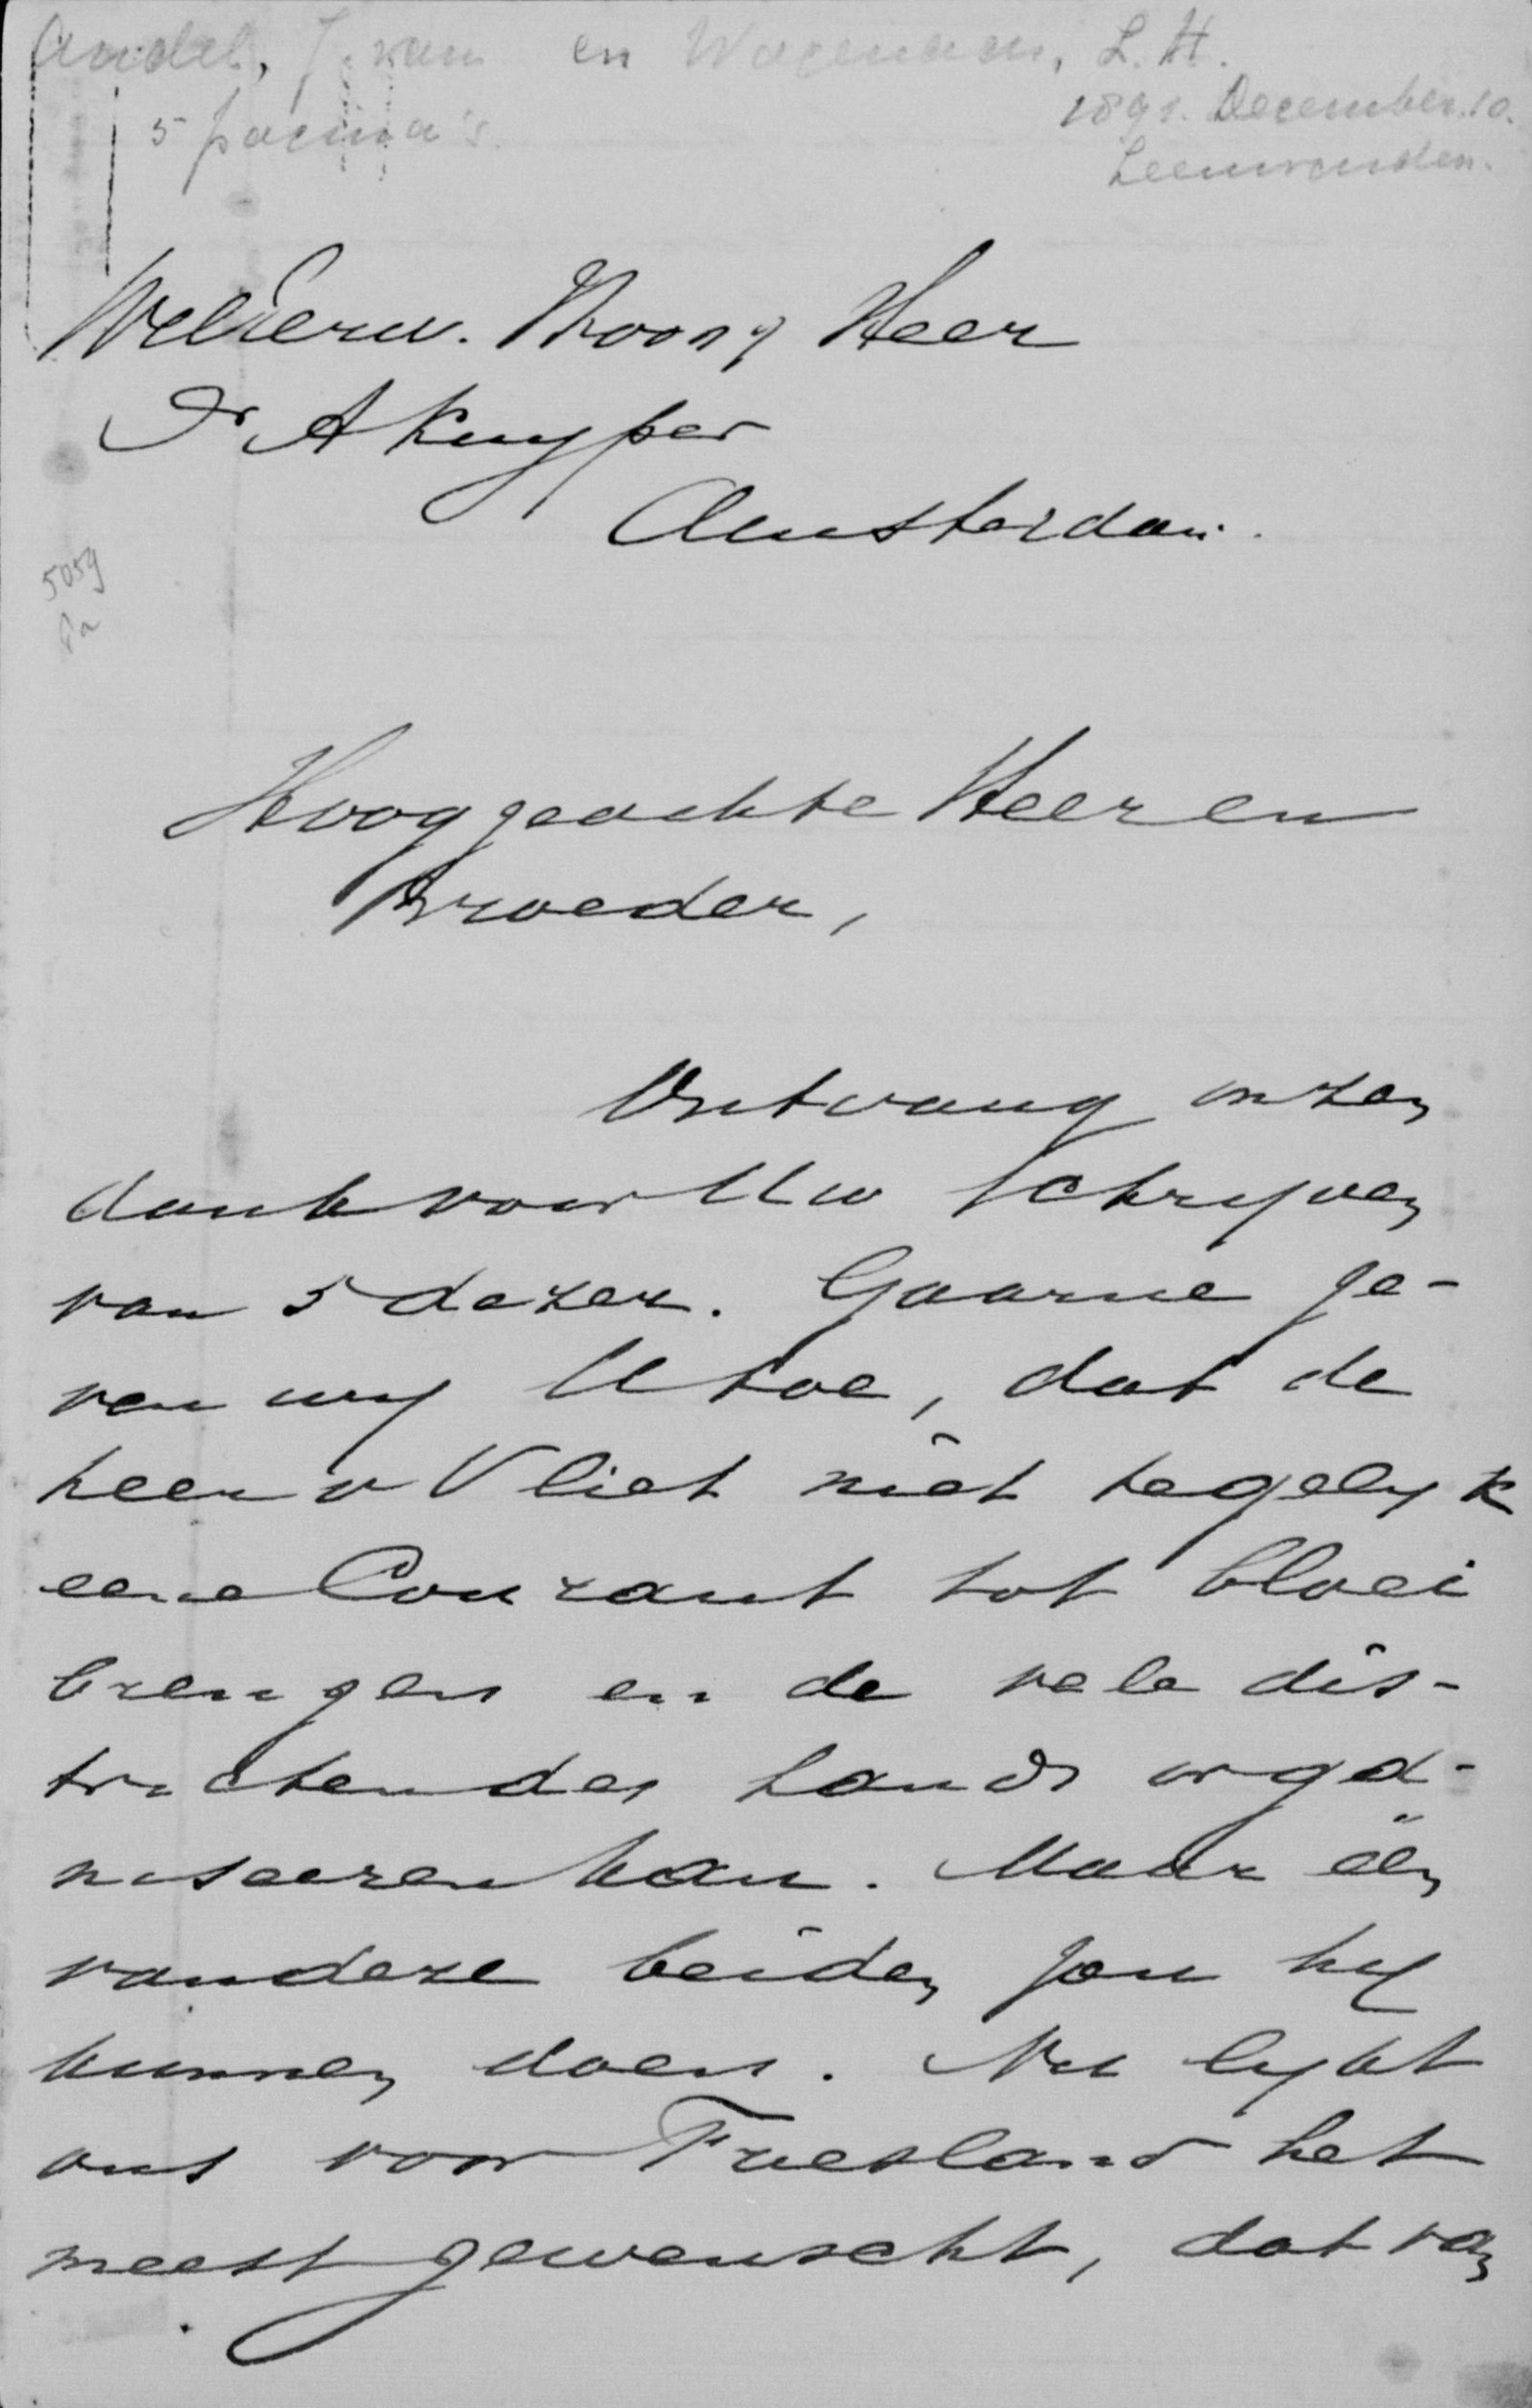 Andel, J. van en Wagenaar, L. H.
5 pagina's
1891. December. 10.
Leeuwarden.
WelEerw. Hoog. Heer
Dr A Kuyper
Amsterdam.
5059
Hooggeachte Heer en
Broeder,
Ontvang onzen
dank voor Uw schryven
van 5 dezer. Gaarne ge-
ven wy U toe, dat de
heer v Vliet niet tegelyk
eene Courant tot bloei
brengen en de vele dis-
tricten des lands orga-
niseeren kan. Maar één
van deze beiden zou hy
kunnen doen. Nu lykt
ons voor Friesland het
meest gewenscht, dat van